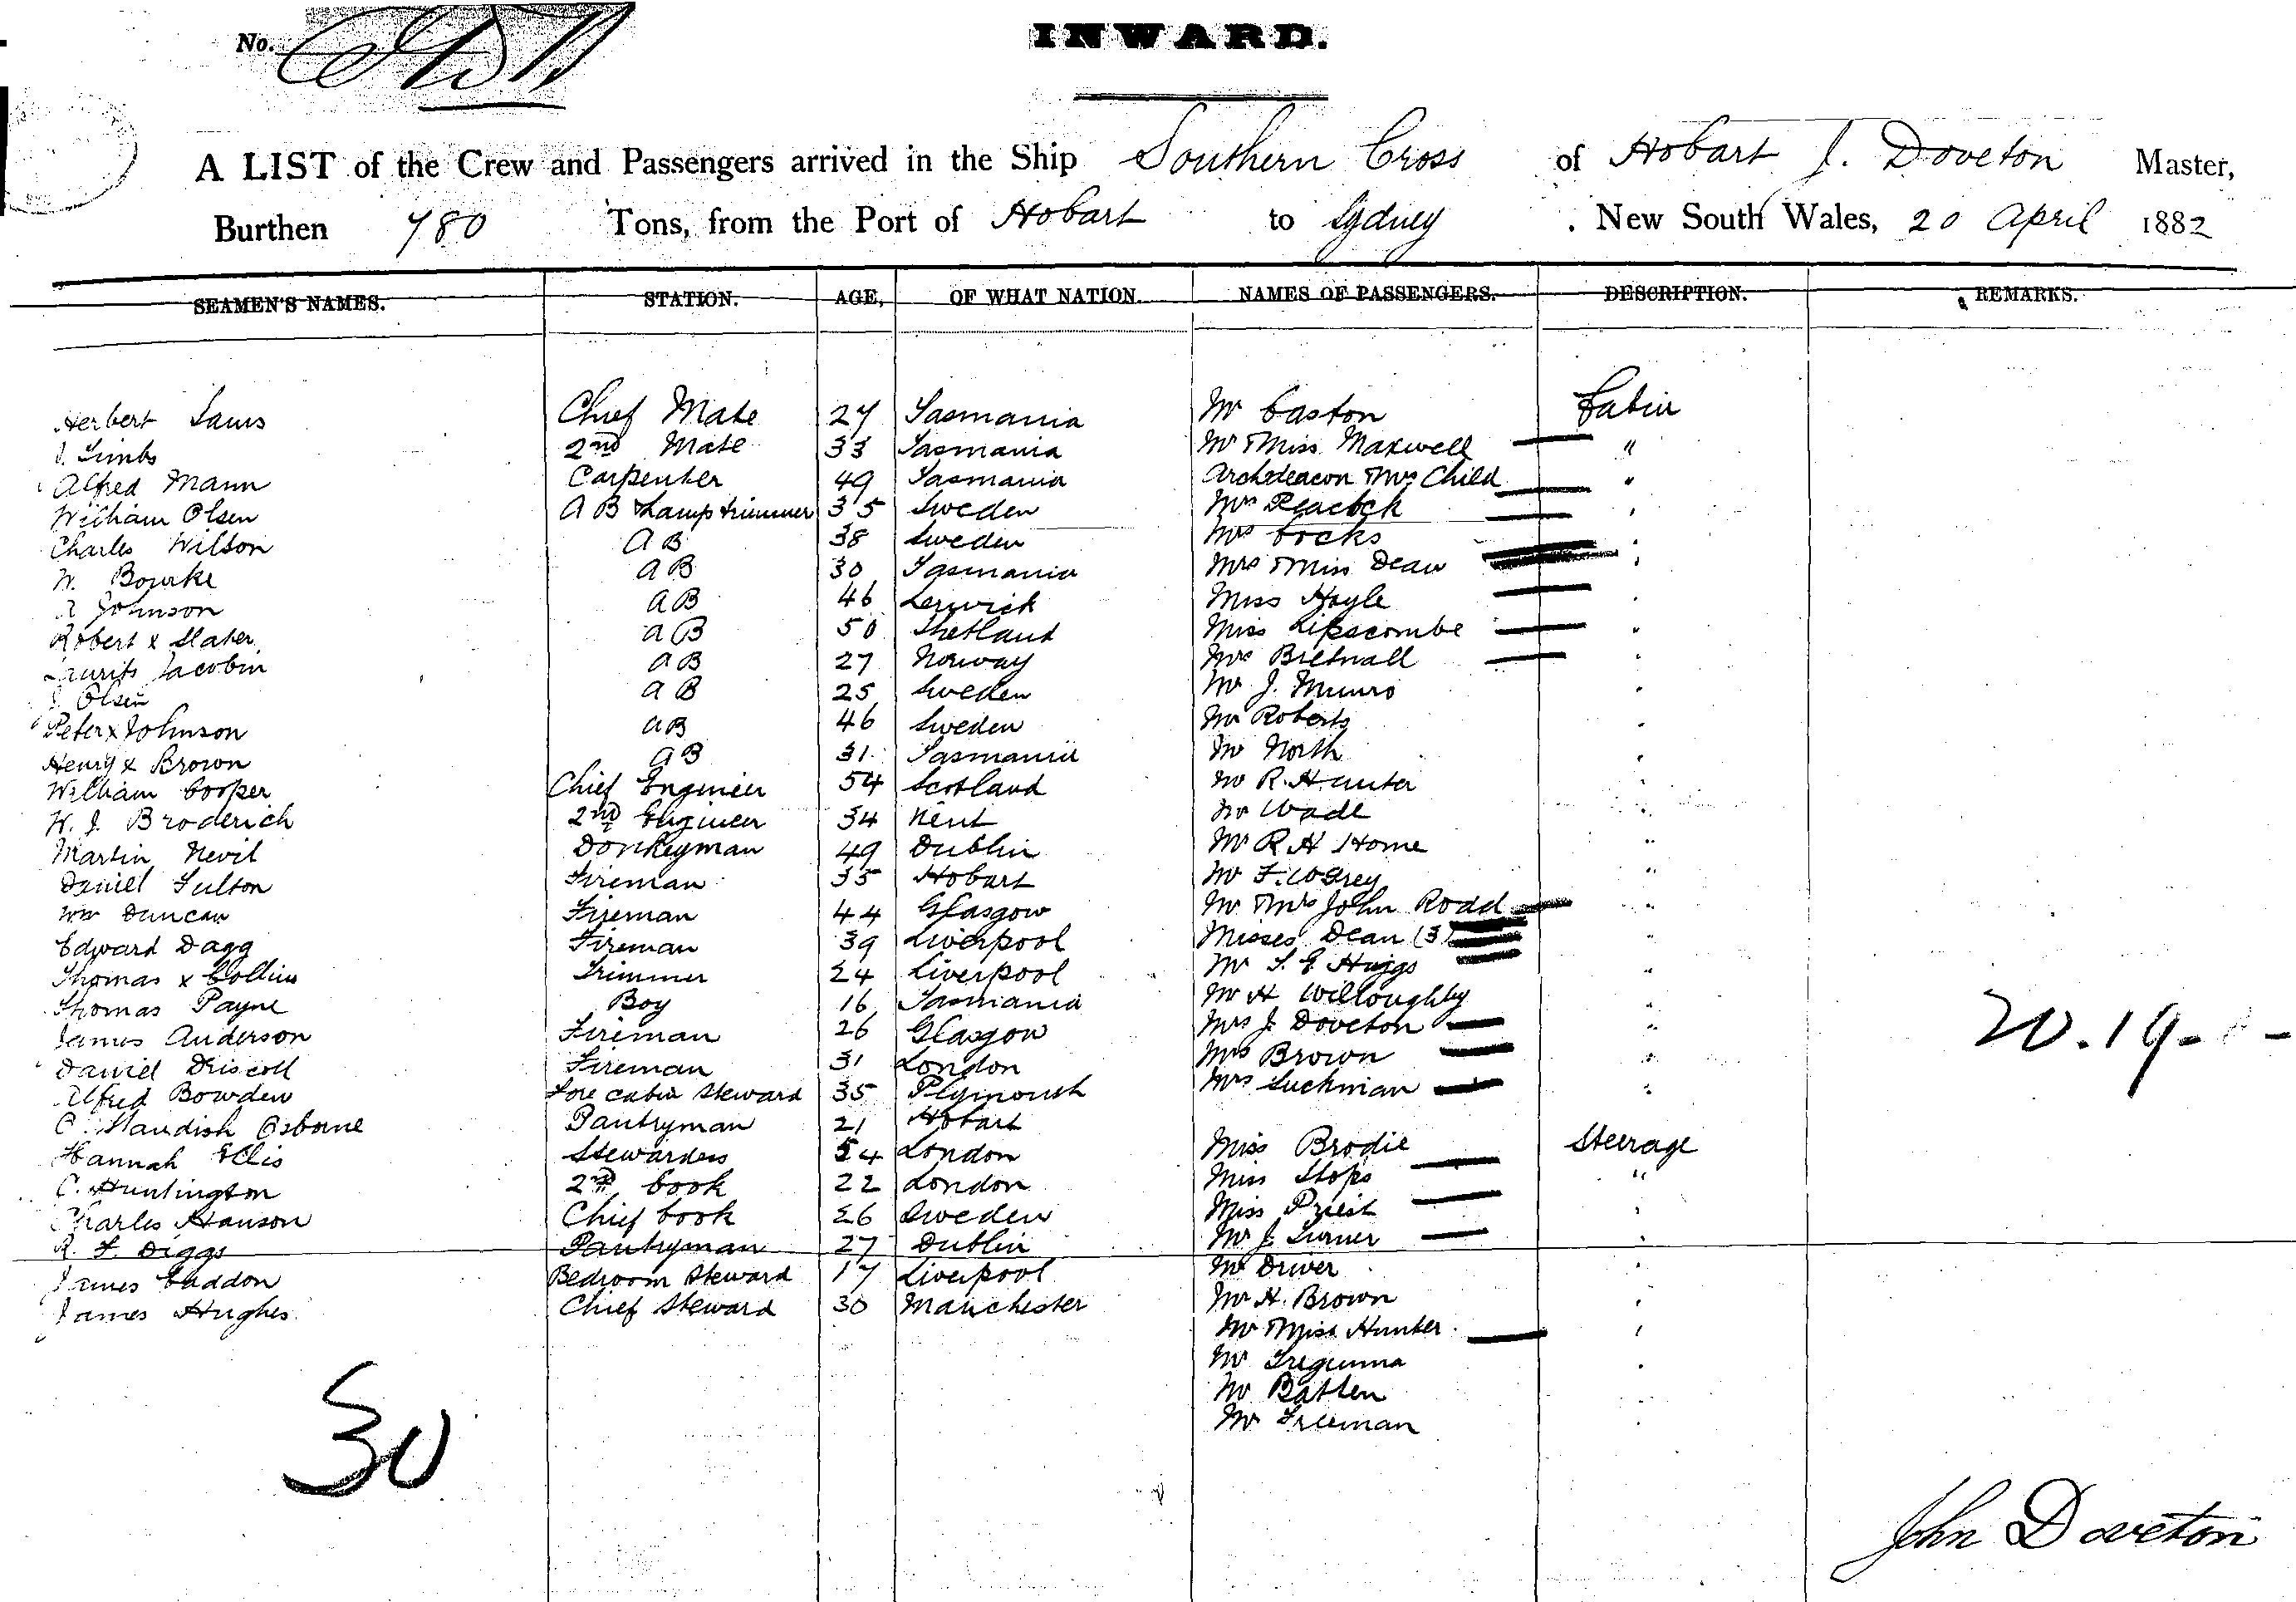 No.
INWARD.
A LIST of the Crew and Passengers arrived in the Ship Southern Cross of Hobart J. Doveton Master,
Burthen 780 Tons, from the Port of Hobart to Sydney New South Wales, 20 April 1882
SEAMEN'S NAMES. STATION. AGE, OF WHAT NATION. NAMES OF PASSENGERS. DESCRIPTION. REMARKS.
Herbert Chief Mate 27 Tasmania Mr Caston Cabin
2nd Mate 33 Tasmania Mr & Miss Maxwell "
Alfred Mann Carpenter 49 Tasmania Archdeacon & Mrs Child "
William Olsen A B & Lamp trimmer 35 Sweden Mrs Peacock "
Charles Wilson A B 38 Sweden Mrs Cocks "
W. Bourke A B 30 Tasmania Mrs & Miss Dean "
Johnson A B 46 Lerwick Miss Hoyle "
Robert x Slater A B 50 Shetland Miss Lipscombe "
Laurits Jacobin A B 27 Norway Mrs Bretnall "
Olsen A B 25 Sweden Mr J. Munro "
Peter x Johnson A B 46 Sweden Mr Roberts "
Henry x Brown A B 31 Tasmania Mr North "
William Cooper Chief Engineer 54 Scotland Mr R. Hunter "
W. J. Broderich 2nd Engineer 34 Kent Mr Wade "
Martin Nevil Donkeyman 49 Dublin Mr R H Home "
Daniel Fulton Fireman 35 Hobart Mr F. W Grey "
Wm Duncan Fireman 44 Glasgow Mr & Mrs John Rodd "
Edward Dagg Fireman 39 Liverpool Misses Dean (3) "
Thomas x Collins Trimmer 24 Liverpool Mr Huggs "
Thomas Payne Boy 16 Tasmania Mr H Willoughby "
James Anderson Fireman 26 Glasgow Mrs J. Doveton "
Daniel Driscoll Fireman 31 London Mrs Brown "
Alfred Bowden Fore Cabin Steward 35 Plymouth Mrs Luckman "
C. Standish Osborne Pantryman 21 Hobart
Hannah Ellis Stewardess 54 London Miss Brodie Steerage
C. Huntington 2nd Cook 22 London Miss Stops "
Charles Hanson Chief Cook 26 Sweden Miss Priest "
R. F. Diggs Pantryman 27 Dublin Mr J. Turner "
James Caddon Bedroom Steward 17 Liverpool Mr Driver "
James Hughes Chief Steward 30 Manchester Mr H. Brown "
Mr & Miss Hunter "
Mr Tregunna "
Mr Batten "
Mr Freeman "
20.19.
30
John Doveton